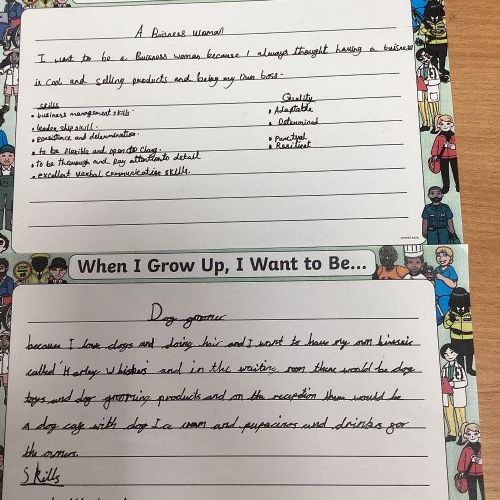 A Buisness woman
I want to be a Buisness woman because I always thought having a buisness
is cool and selling products and being my own boss.
skills
Quality
• business management skills
• Adaptable
• leader ship skill.
• Determined
• Persistence and determination.
• Punctual
• to be flexible and open to
• Resilient
• to be thorough and Pay attention to detail
• excellent verbal communication skills.
When I Grow Up, I Want to Be...
Dog groomer
because I love dogs and doing hair and I want to have my own
called 'Harley Whiskers' and in the waiting room there would be dog
toys and dog grooming products and on the reception there would be
a dog cafe with dog Ice cream and pupacinos and drinks for
the owners.
Skills